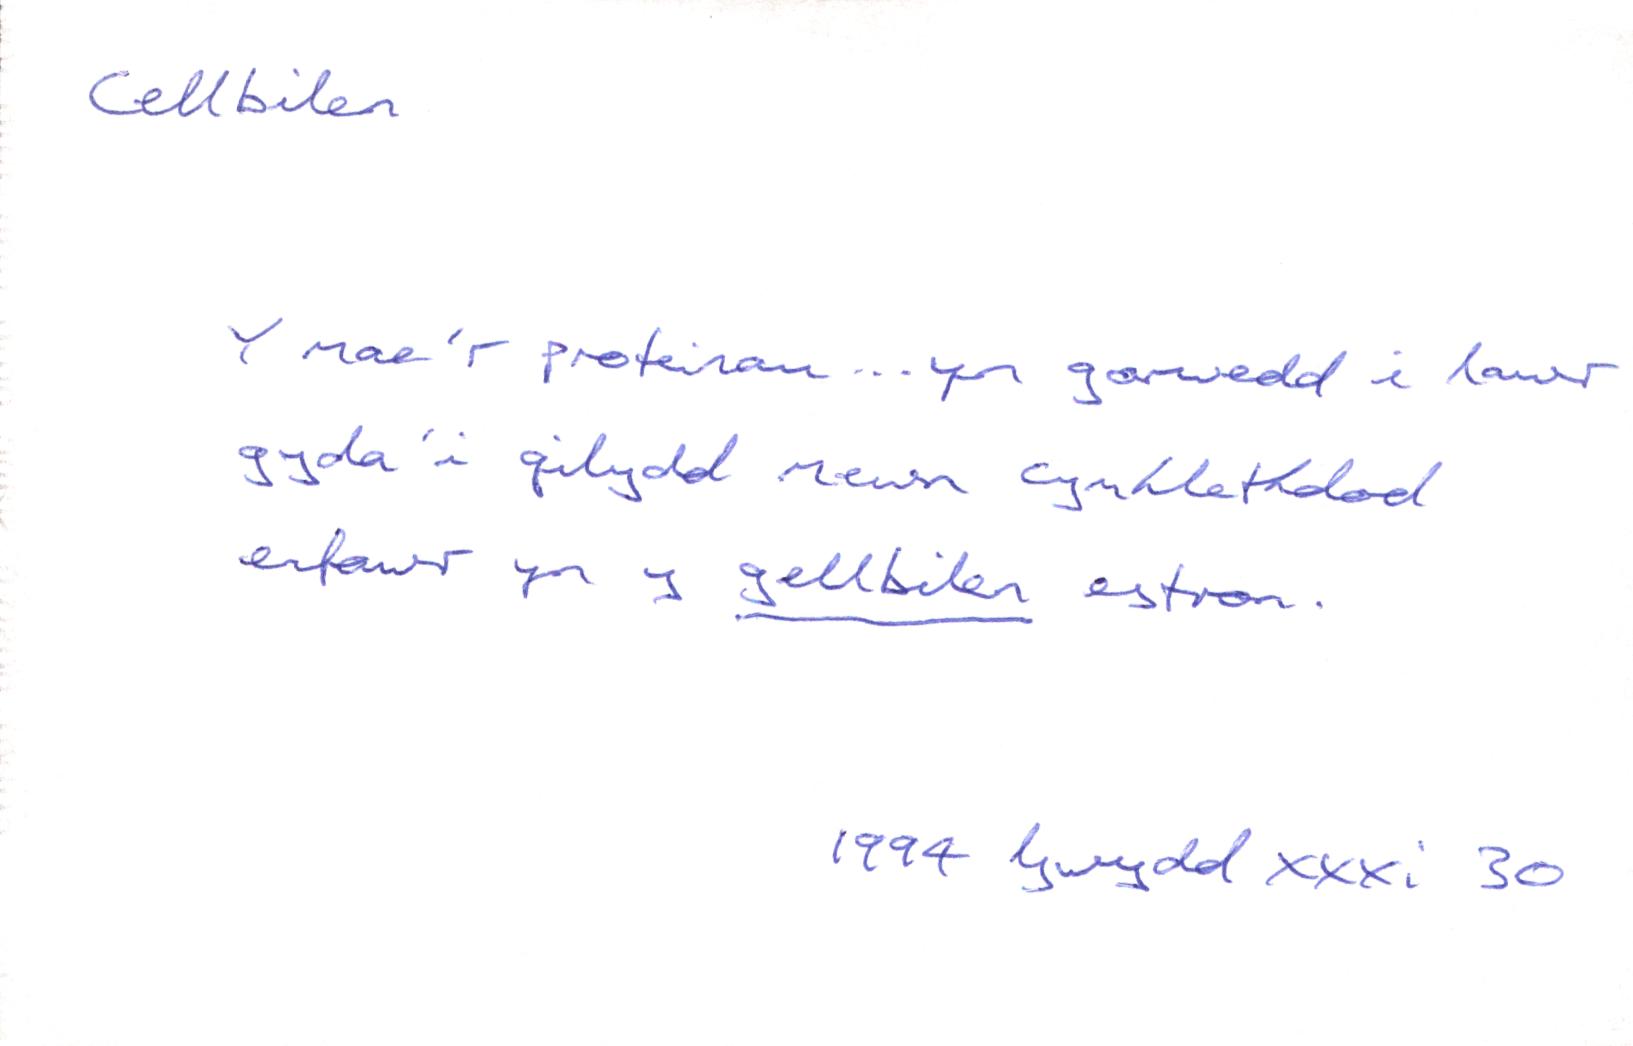 Cellbilen
Y mae'r proteinau... yn gorwedd i lawr
gyda'i gilydd mewn cymhlethdod
enfawr yn y gellbilen estron.
1994 Gwydd xxxi 30